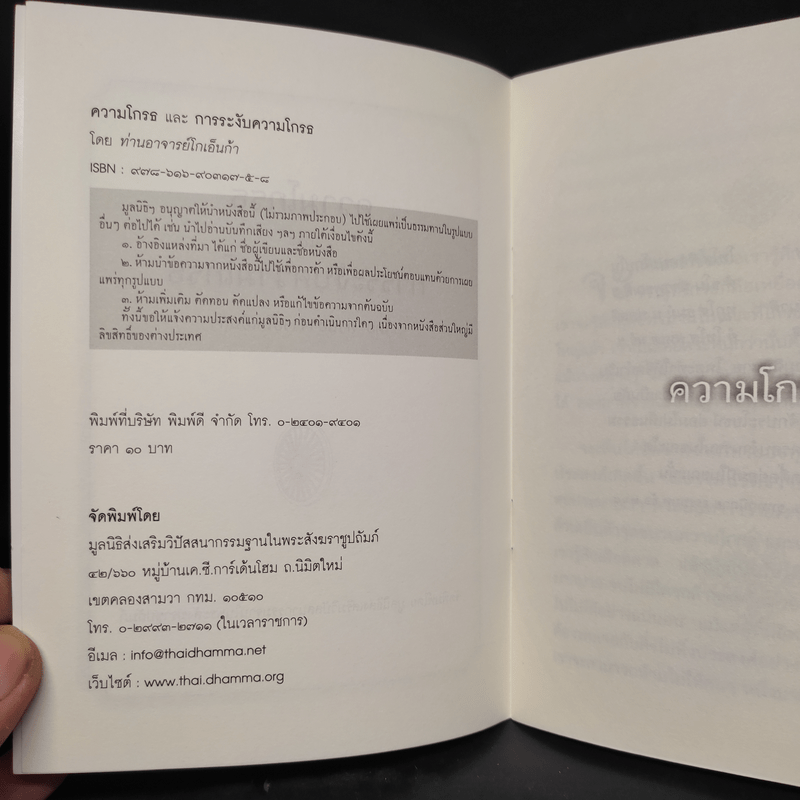 ความโกรธ และ การระงับความโกรธ
โดย ท่านอาจารย์โกเอ็นก้า
ISBN : ๙๗๘-๖๑๖-๙๐๓๑๗-๕-๘
มูลนิธิฯ อนุญาตให้นำหนังสือนี้ (ไม่รวมภาพประกอบ) ไปใช้เผยแพร่เป็นธรรมทานในรูปแบบ
อื่นๆ ต่อไปได้ เช่น นำไปอ่านบันทึกเสียง ฯลฯ ภายใต้เงื่อนไขดังนี้
๑. อ้างอิงแหล่งที่มา ได้แก่ ชื่อผู้เขียนและชื่อหนังสือ
๒. ห้ามนำข้อความจากหนังสือนี้ไปใช้เพื่อการค้า หรือเพื่อผลประโยชน์ตอบแทนด้วยการเผย
แพร่ทุกรูปแบบ
๓. ห้ามเพิ่มเติม ตัดทอน ดัดแปลง หรือแก้ไขข้อความจากต้นฉบับ
ทั้งนี้ขอให้แจ้งความประสงค์แก่มูลนิธิฯ ก่อนดำเนินการใดๆ เนื่องจากหนังสือส่วนใหญ่มี
ลิขสิทธิ์ของต่างประเทศ
พิมพ์ที่บริษัท พิมพ์ดี จำกัด โทร. ๐-๒๔๐๑-๙๔๐๑
ราคา ๑๐ บาท
จัดพิมพ์โดย
มูลนิธิส่งเสริมวิปัสสนากรรมฐานในพระสังฆราชูปถัมภ์
๔๒/๖๖๐ หมู่บ้านเค.ซี.การ์เด้นโฮม ถ.นิมิตใหม่
เขตคลองสามวา กทม. ๑๐๕๑๐
โทร. ๐-๒๙๙๓-๒๗๑๑ (ในเวลาราชการ)
อีเมล : info@thaidhamma.net
เว็บไซต์ : www.thai.dhamma.org
ความโก